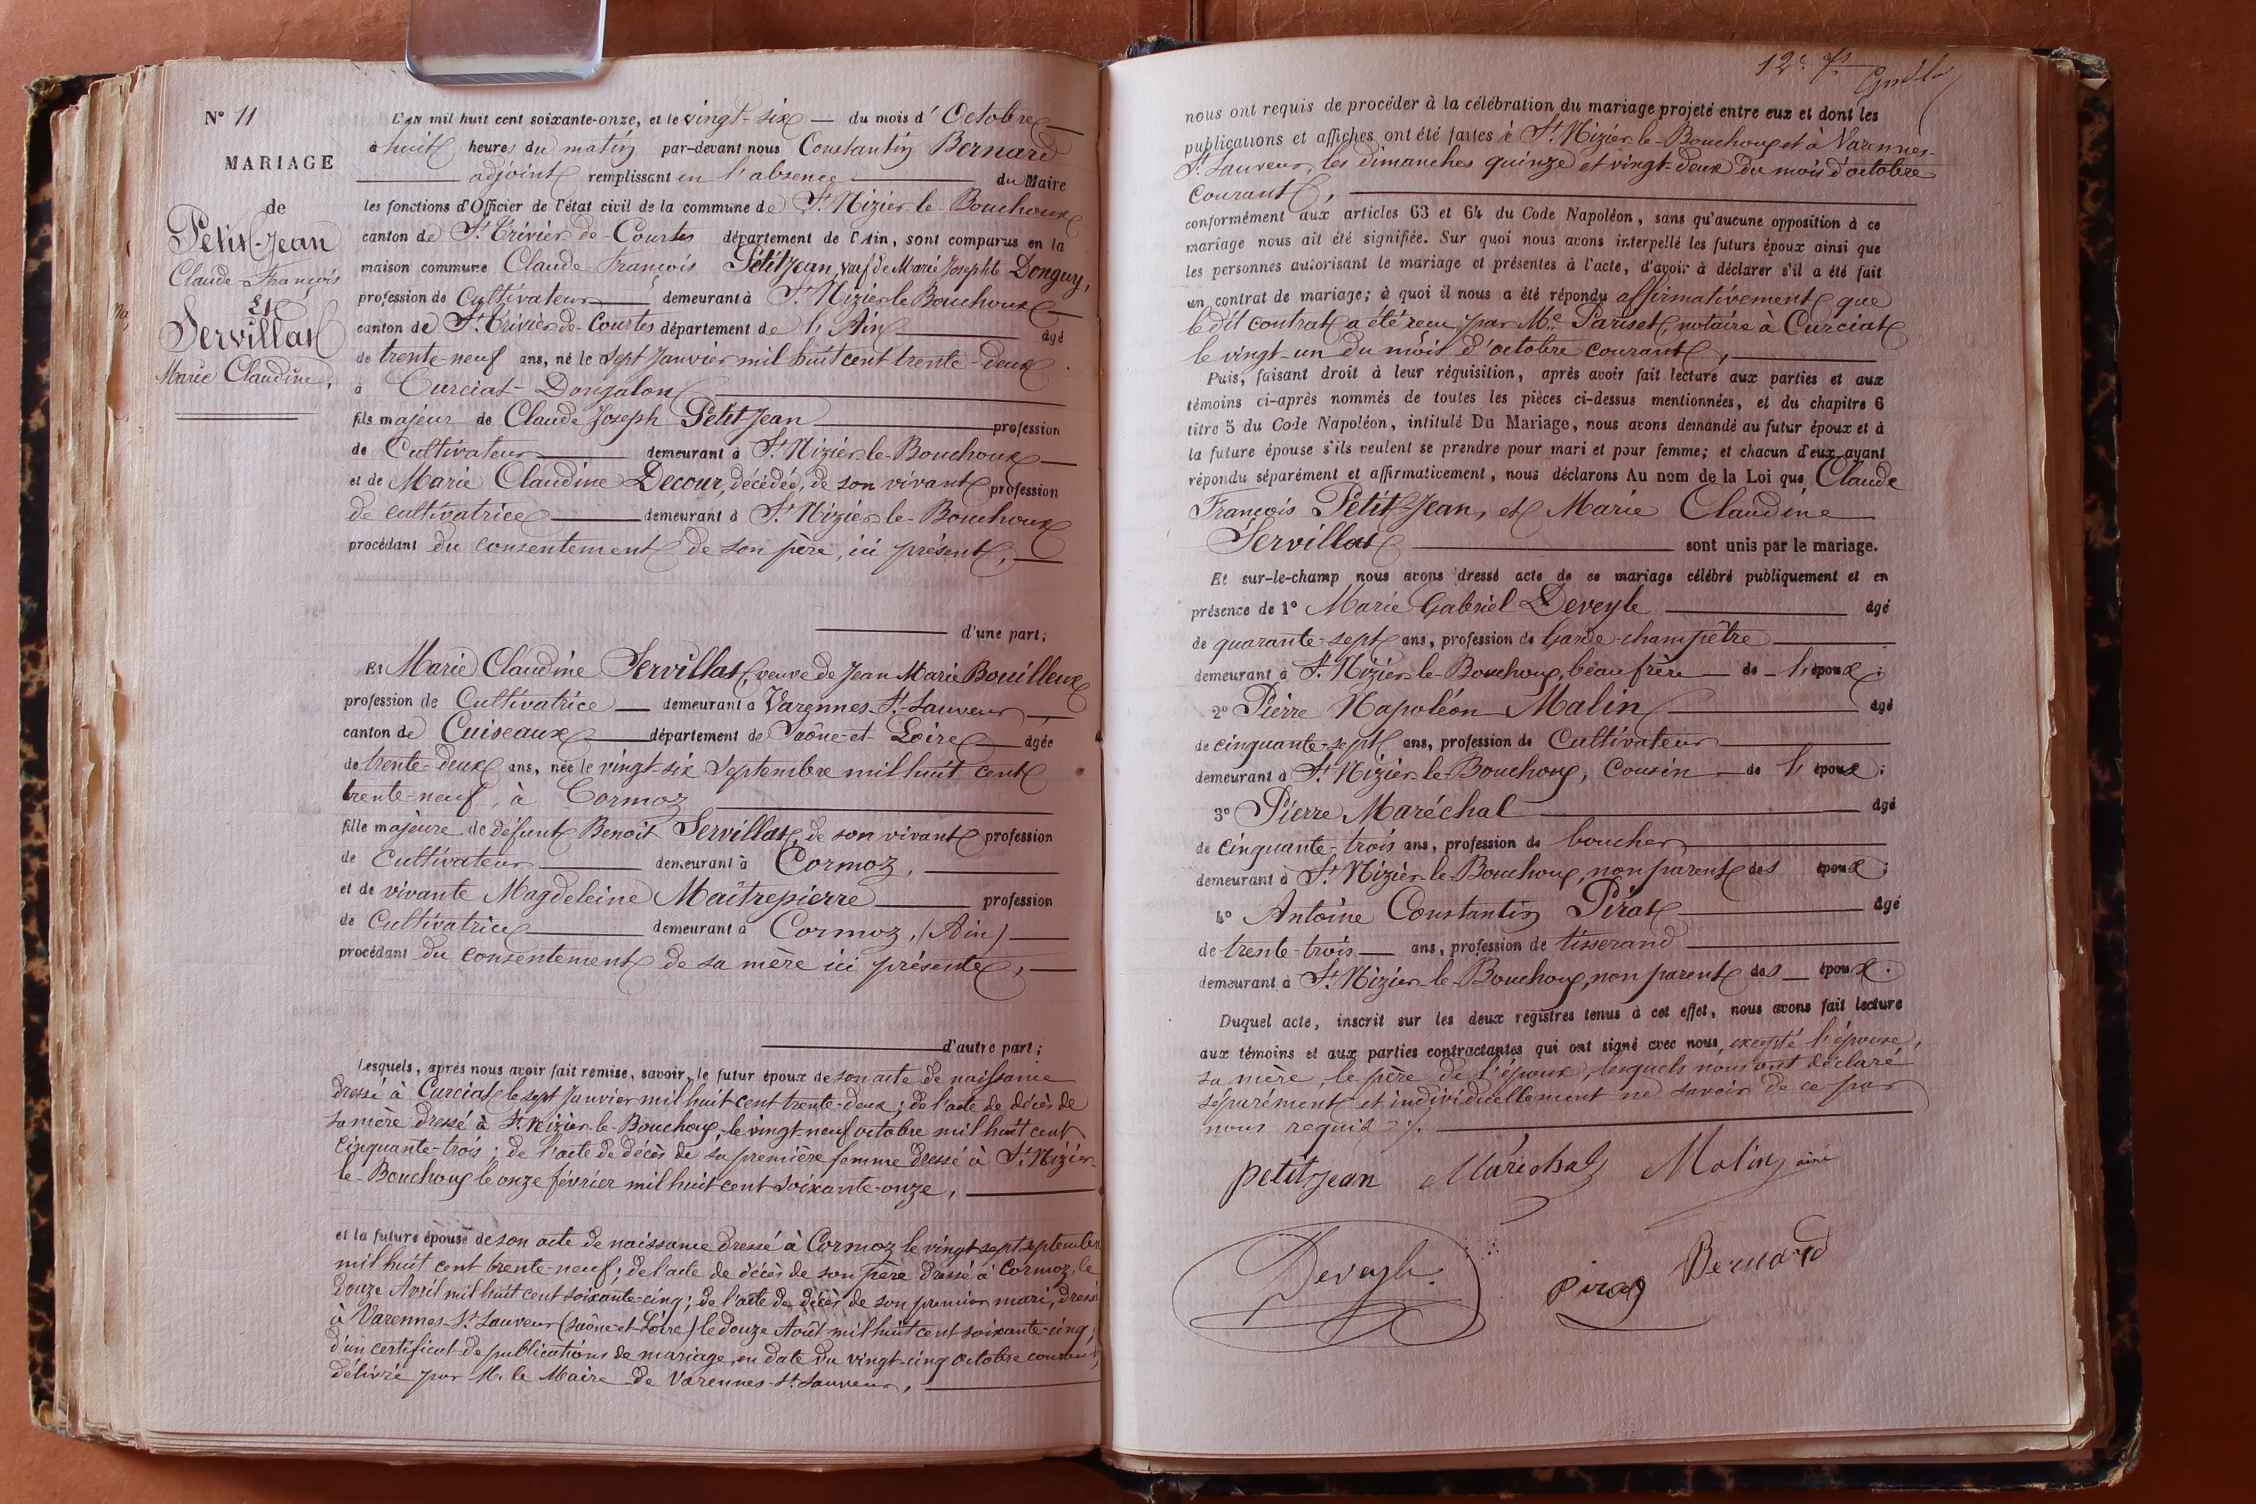 N° 11
MARIAGE
de
Petit-Jean
Claude-François
Et
Servillat
Marie Claudine,
L'an mil huit cent soixante-onze, et le vingt-six du mois d'Octobre
à huit heures du matin par-devant nous Constantin Bernard
adjoint remplissant en l'absence du Maire
les fonctions d'Officier de l'état civil de la commune de St Nizier-le-Bouchoux
canton de St Trivier-de-Courtes département de l'Ain, sont comparus en la
maison commune Claude-François Petitjean, veuf de Marie Josephte Donguy,
profession de Cultivateur demeurant à St Nizier-le-Bouchoux
canton de St Trivier-de-Courtes département de l'Ain âgé
de trente-neuf ans, né le sept Janvier mil huit cent trente-deux
à Curciat-Dongalon
fils majeur de Claude Joseph Petitjean profession
de Cultivateur demeurant à St Nizier-le-Bouchoux
et de Marie Claudine Decour, décédée, de son vivant profession
de cultivatrice demeurant à St Nizier-le-Bouchoux
procédant du consentement de son père, ici présent,
d'une part;
Et Marie Claudine Servillat, veuve de Jean Marie Bouilleux
profession de Cultivatrice demeurant à Varennes-St-Sauveur
canton de Cuiseaux département de Saône-et-Loire âgée
de trente-deux ans, née le vingt-six Septembre mil huit cent
trente-neuf, à Cormoz
fille majeure de défunt Benoit Servillat, de son vivant profession
de Cultivateur demeurant à Cormoz,
et de vivante Magdeleine Maîtrepierre profession
de Cultivatrice demeurant à Cormoz, (Ain)
procédant du consentement de sa mère ici présente,
d'autre part;
Lesquels, après nous avoir fait remise, savoir, le futur époux de son acte de naissance
dressé à Curciat le sept Janvier mil huit cent trente-deux; de l'acte de décès de
sa mère dressé à St Nizier-le-Bouchoux, le vingt-neuf octobre mil huit cent
cinquante-trois; de l'acte de décès de sa première femme dressé à St Nizier-
le-Bouchoux le onze février mil huit cent soixante-onze,
et la future épouse de son acte de naissance dressé à Cormoz le vingt-sept septembre
mil huit cent trente-neuf; de l'acte de décès de son père dressé à Cormoz, le
douze Avril mil huit cent soixante-cinq; de l'acte de décès de son premier mari, dressé
à Varennes-St-Sauveur (Saône-et-Loire) le douze Août mil huit cent soixante-cinq;
d'un certificat de publications de mariage, en date du vingt-cinq octobre courant,
délivré par M. le Maire de Varennes-St-Sauveur,
12e
nous ont requis de procéder à la célébration du mariage projeté entre eux et dont les
publications et affiches ont été faites à St Nizier-le-Bouchoux et à Varennes-
St Sauveur, les dimanches quinze et vingt-deux du mois d'octobre
courant,
conformément aux articles 63 et 64 du Code Napoléon, sans qu'aucune opposition à ce
mariage nous ait été signifiée. Sur quoi nous avons interpellé les futurs époux ainsi que
les personnes autorisant le mariage et présentes à l'acte, d'avoir à déclarer s'il a été fait
un contrat de mariage; à quoi il nous a été répondu affirmativement que
le dit contrat a été reçu par Me Pariset, notaire à Curciat
le vingt-un du mois d'octobre courant,
Puis, faisant droit à leur réquisition, après avoir fait lecture aux parties et aux
témoins ci-après nommés de toutes les pièces ci-dessus mentionnées, et du chapitre 6
titre 5 du Code Napoléon, intitulé Du Mariage, nous avons demandé au futur époux et à
la future épouse s'ils veulent se prendre pour mari et pour femme; et chacun d'eux ayant
répondu séparément et affirmativement, nous déclarons Au nom de la Loi que Claude
François Petitjean, et Marie Claudine
Servillat sont unis par le mariage.
Et sur-le-champ nous avons dressé acte de ce mariage célébré publiquement et en
présence de 1° Marie Gabriel Deveyle âgé
de quarante-sept ans, profession de Garde-champêtre
demeurant à St Nizier-le-Bouchoux, beau frère de l'époux;
2° Pierre Napoléon Malin âgé
de cinquante-sept ans, profession de Cultivateur
demeurant à St Nizier-le-Bouchoux, cousin de l'époux;
3° Pierre Maréchal âgé
de cinquante-trois ans, profession de boucher
demeurant à St Nizier-le-Bouchoux, non parent des époux;
4° Antoine Constantin Pirat âgé
de trente-trois ans, profession de tisserand
demeurant à St Nizier-le-Bouchoux, non parent des époux.
Duquel acte, inscrit sur les deux registres tenus à cet effet, nous avons fait lecture
aux témoins et aux parties contractantes qui ont signé avec nous, excepté l'épouse,
sa mère, le père de l'époux, lesquels nous ont déclaré
séparément et individuellement ne savoir de ce par
nous requis ./.
petitjean Maréchal Malin ainé
Deveyle
Pirat Bernard